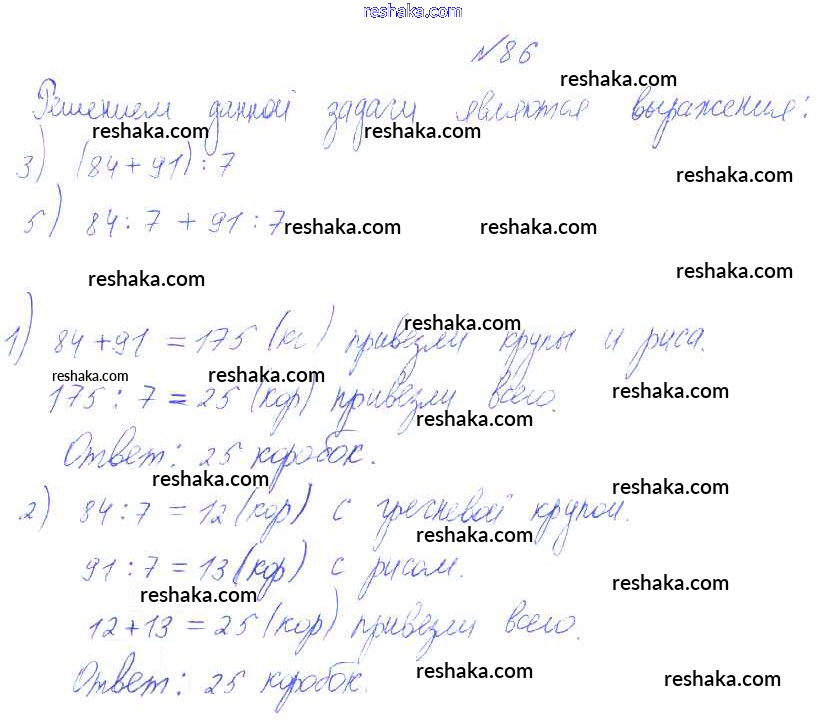 reshaka.com
№86
reshaka.com
Решением данной задачи являются выражения:
reshaka.com reshaka.com
3) (84+91):7
reshaka.com
5) 84:7+91:7
reshaka.com reshaka.com
reshaka.com
reshaka.com
reshaka.com
1) 84+91=175 (кг) привезли крупы и риса.
reshaka.com reshaka.com
175:7=25 (кор) привезли всего.
reshaka.com
reshaka.com
Ответ: 25 коробок.
reshaka.com
reshaka.com
2) 84:7=12 (кор) с гречневой крупой.
reshaka.com
91:7=13 (кор) с рисом.
reshaka.com
reshaka.com
12+13=25 (кор) привезли всего.
reshaka.com
Ответ: 25 коробок.
reshaka.com